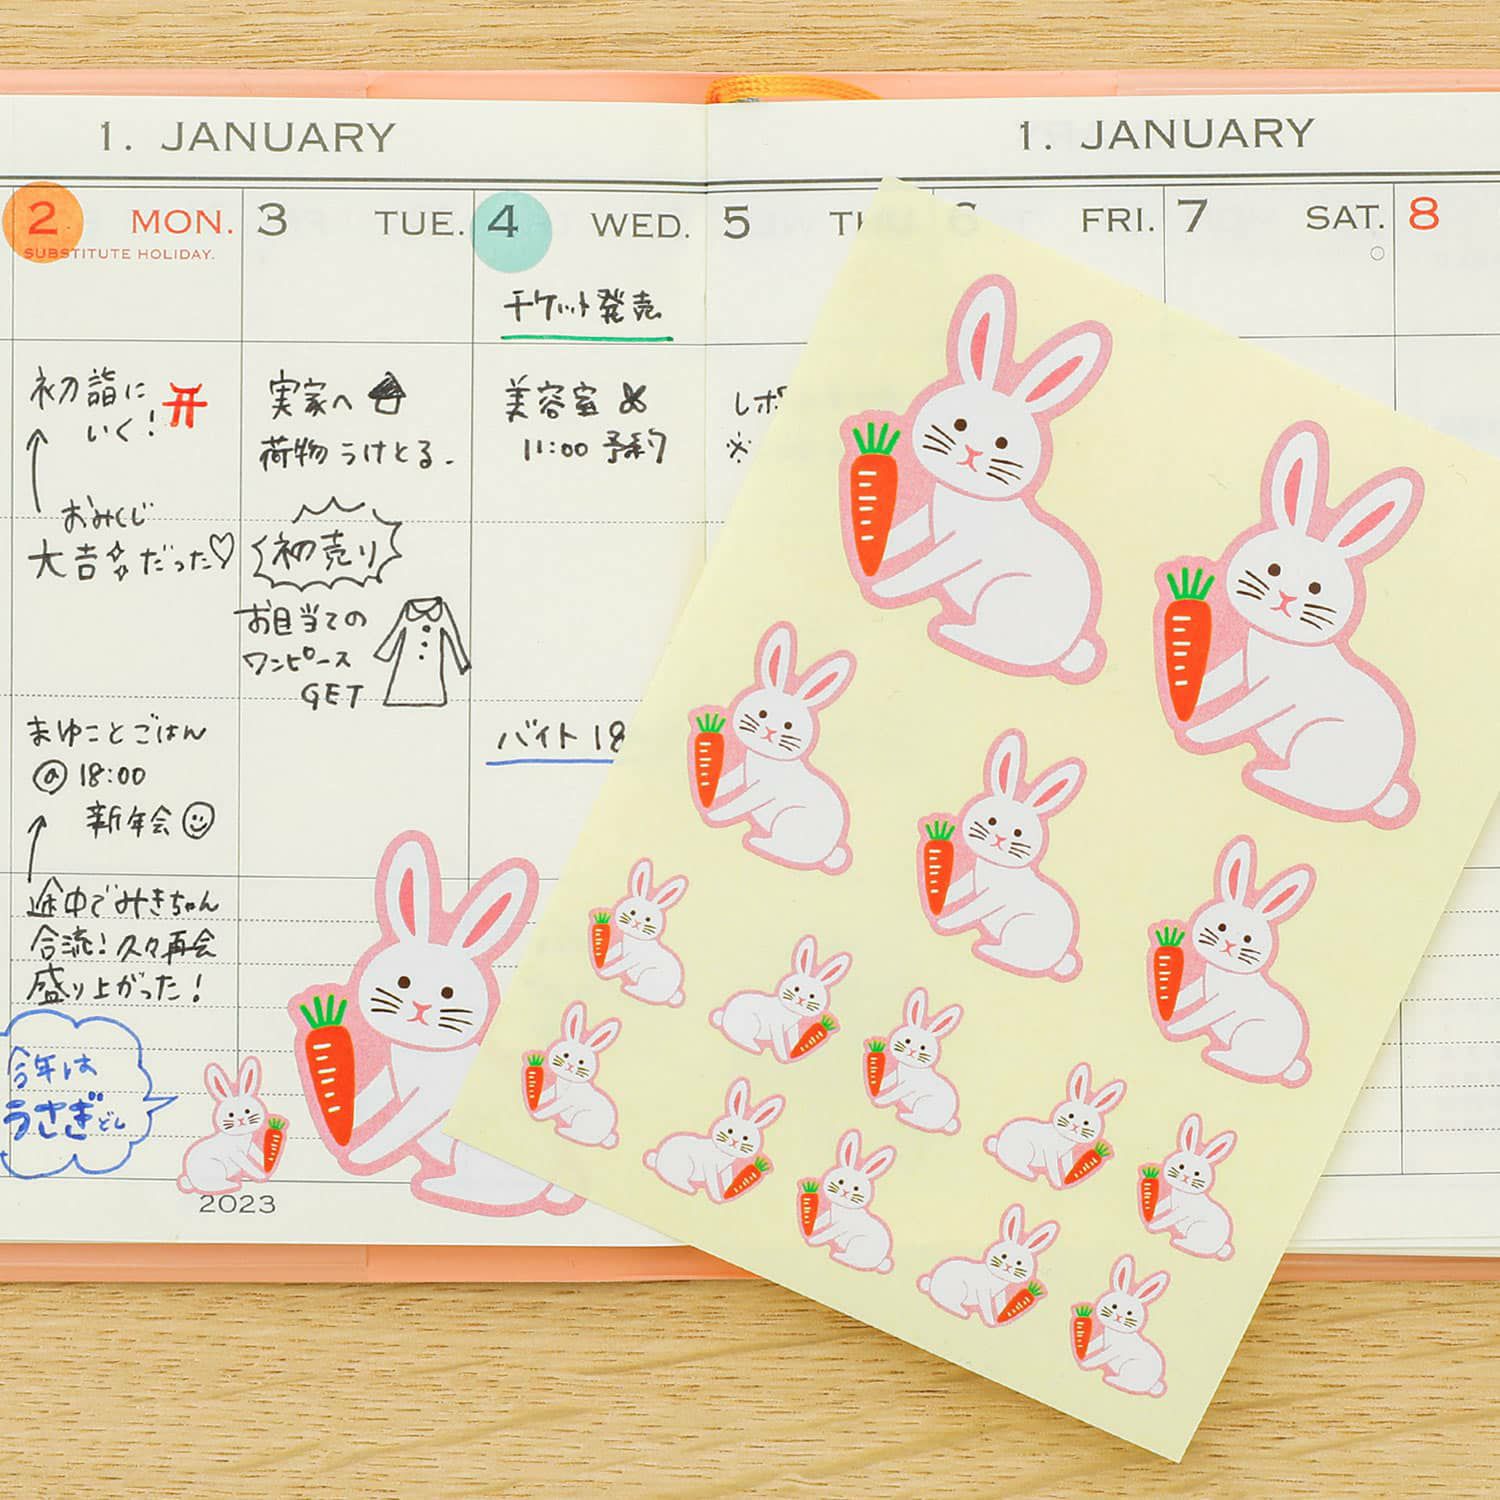 1. JANUARY
1. JANUARY
2 MON.
SUBSTITUTE HOLIDAY.
初詣に
いく!
おみくじ
大吉だった♡
まゆことごはん
@18:00
新年会
途中でみきちゃん
合流!久々再会
盛り上がった!
今年は
うさぎどし
3 TUE.
実家へ
荷物うけとる.
初売り
お目当ての
ワンピース
GET
4 WED.
チケット発売
美容室
11:00 予約
バイト 18
5
レポ
※
6 FRI.
7 SAT.
8
2023